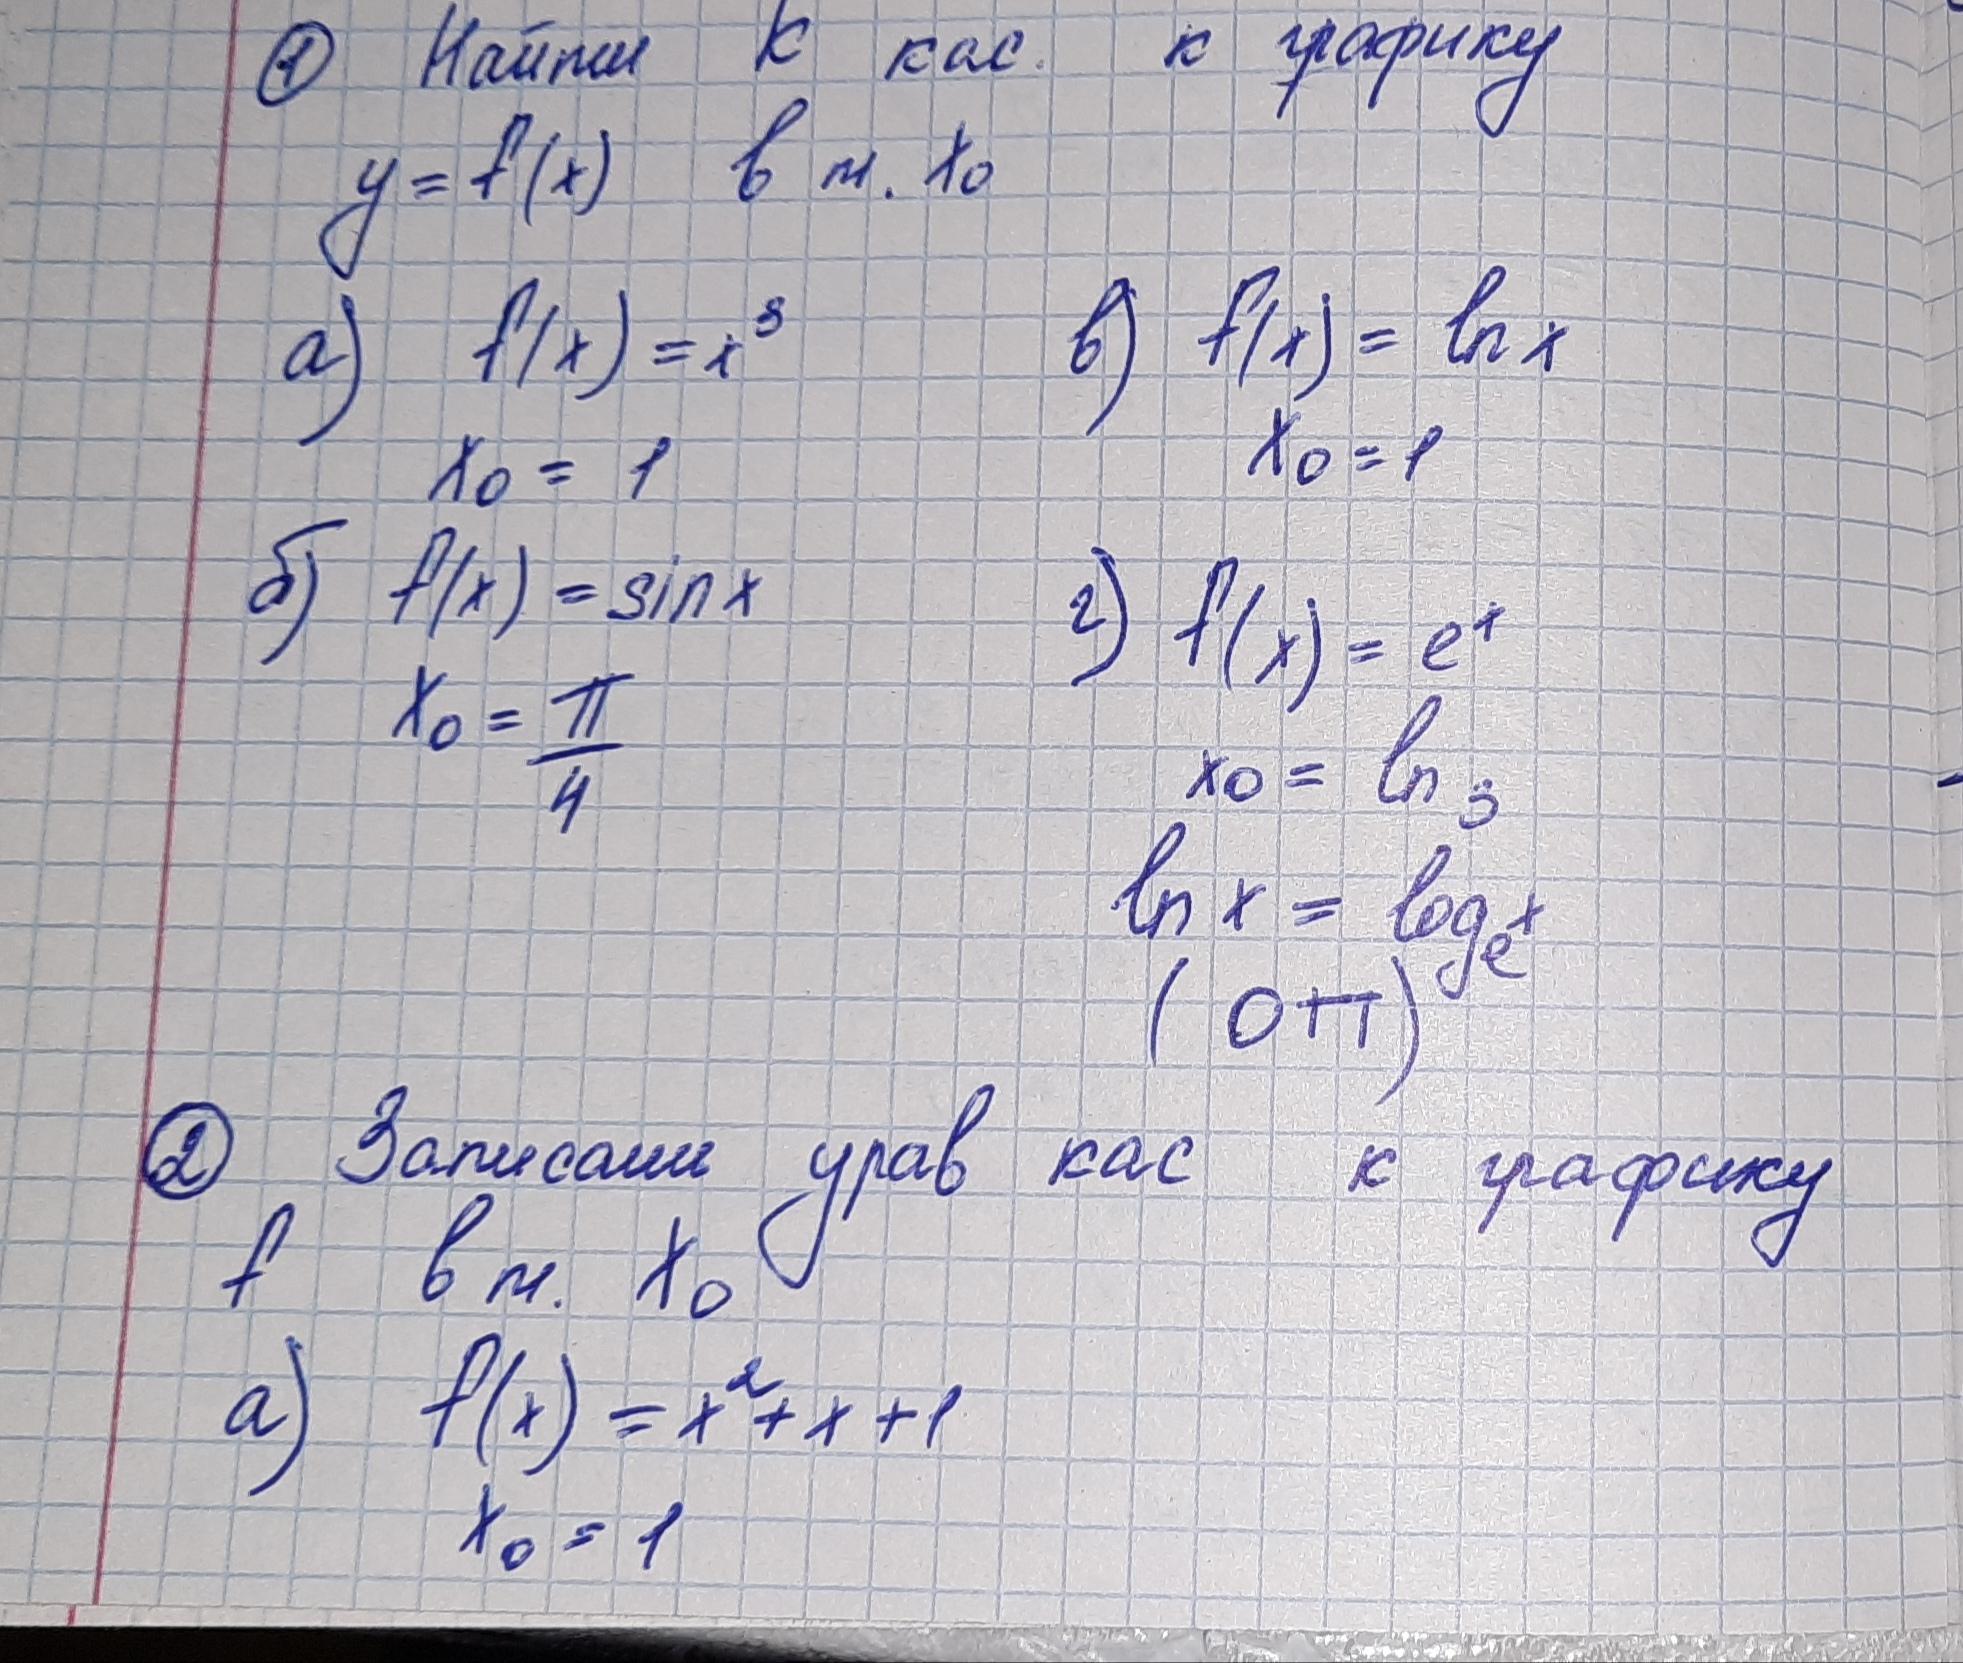 ① Найти k кас. к графику
y = f(x) в т. x₀
а) f(x) = x³
x₀ = 1
б) f(x) = sin x
x₀ = π/4
в) f(x) = ln x
x₀ = 1
г) f(x) = eˣ
x₀ = ln 3
ln x = logₑ x
(ОТТ)
② Записать урав кас к графику
f в т. x₀
а) f(x) = x² + x + 1
x₀ = 1